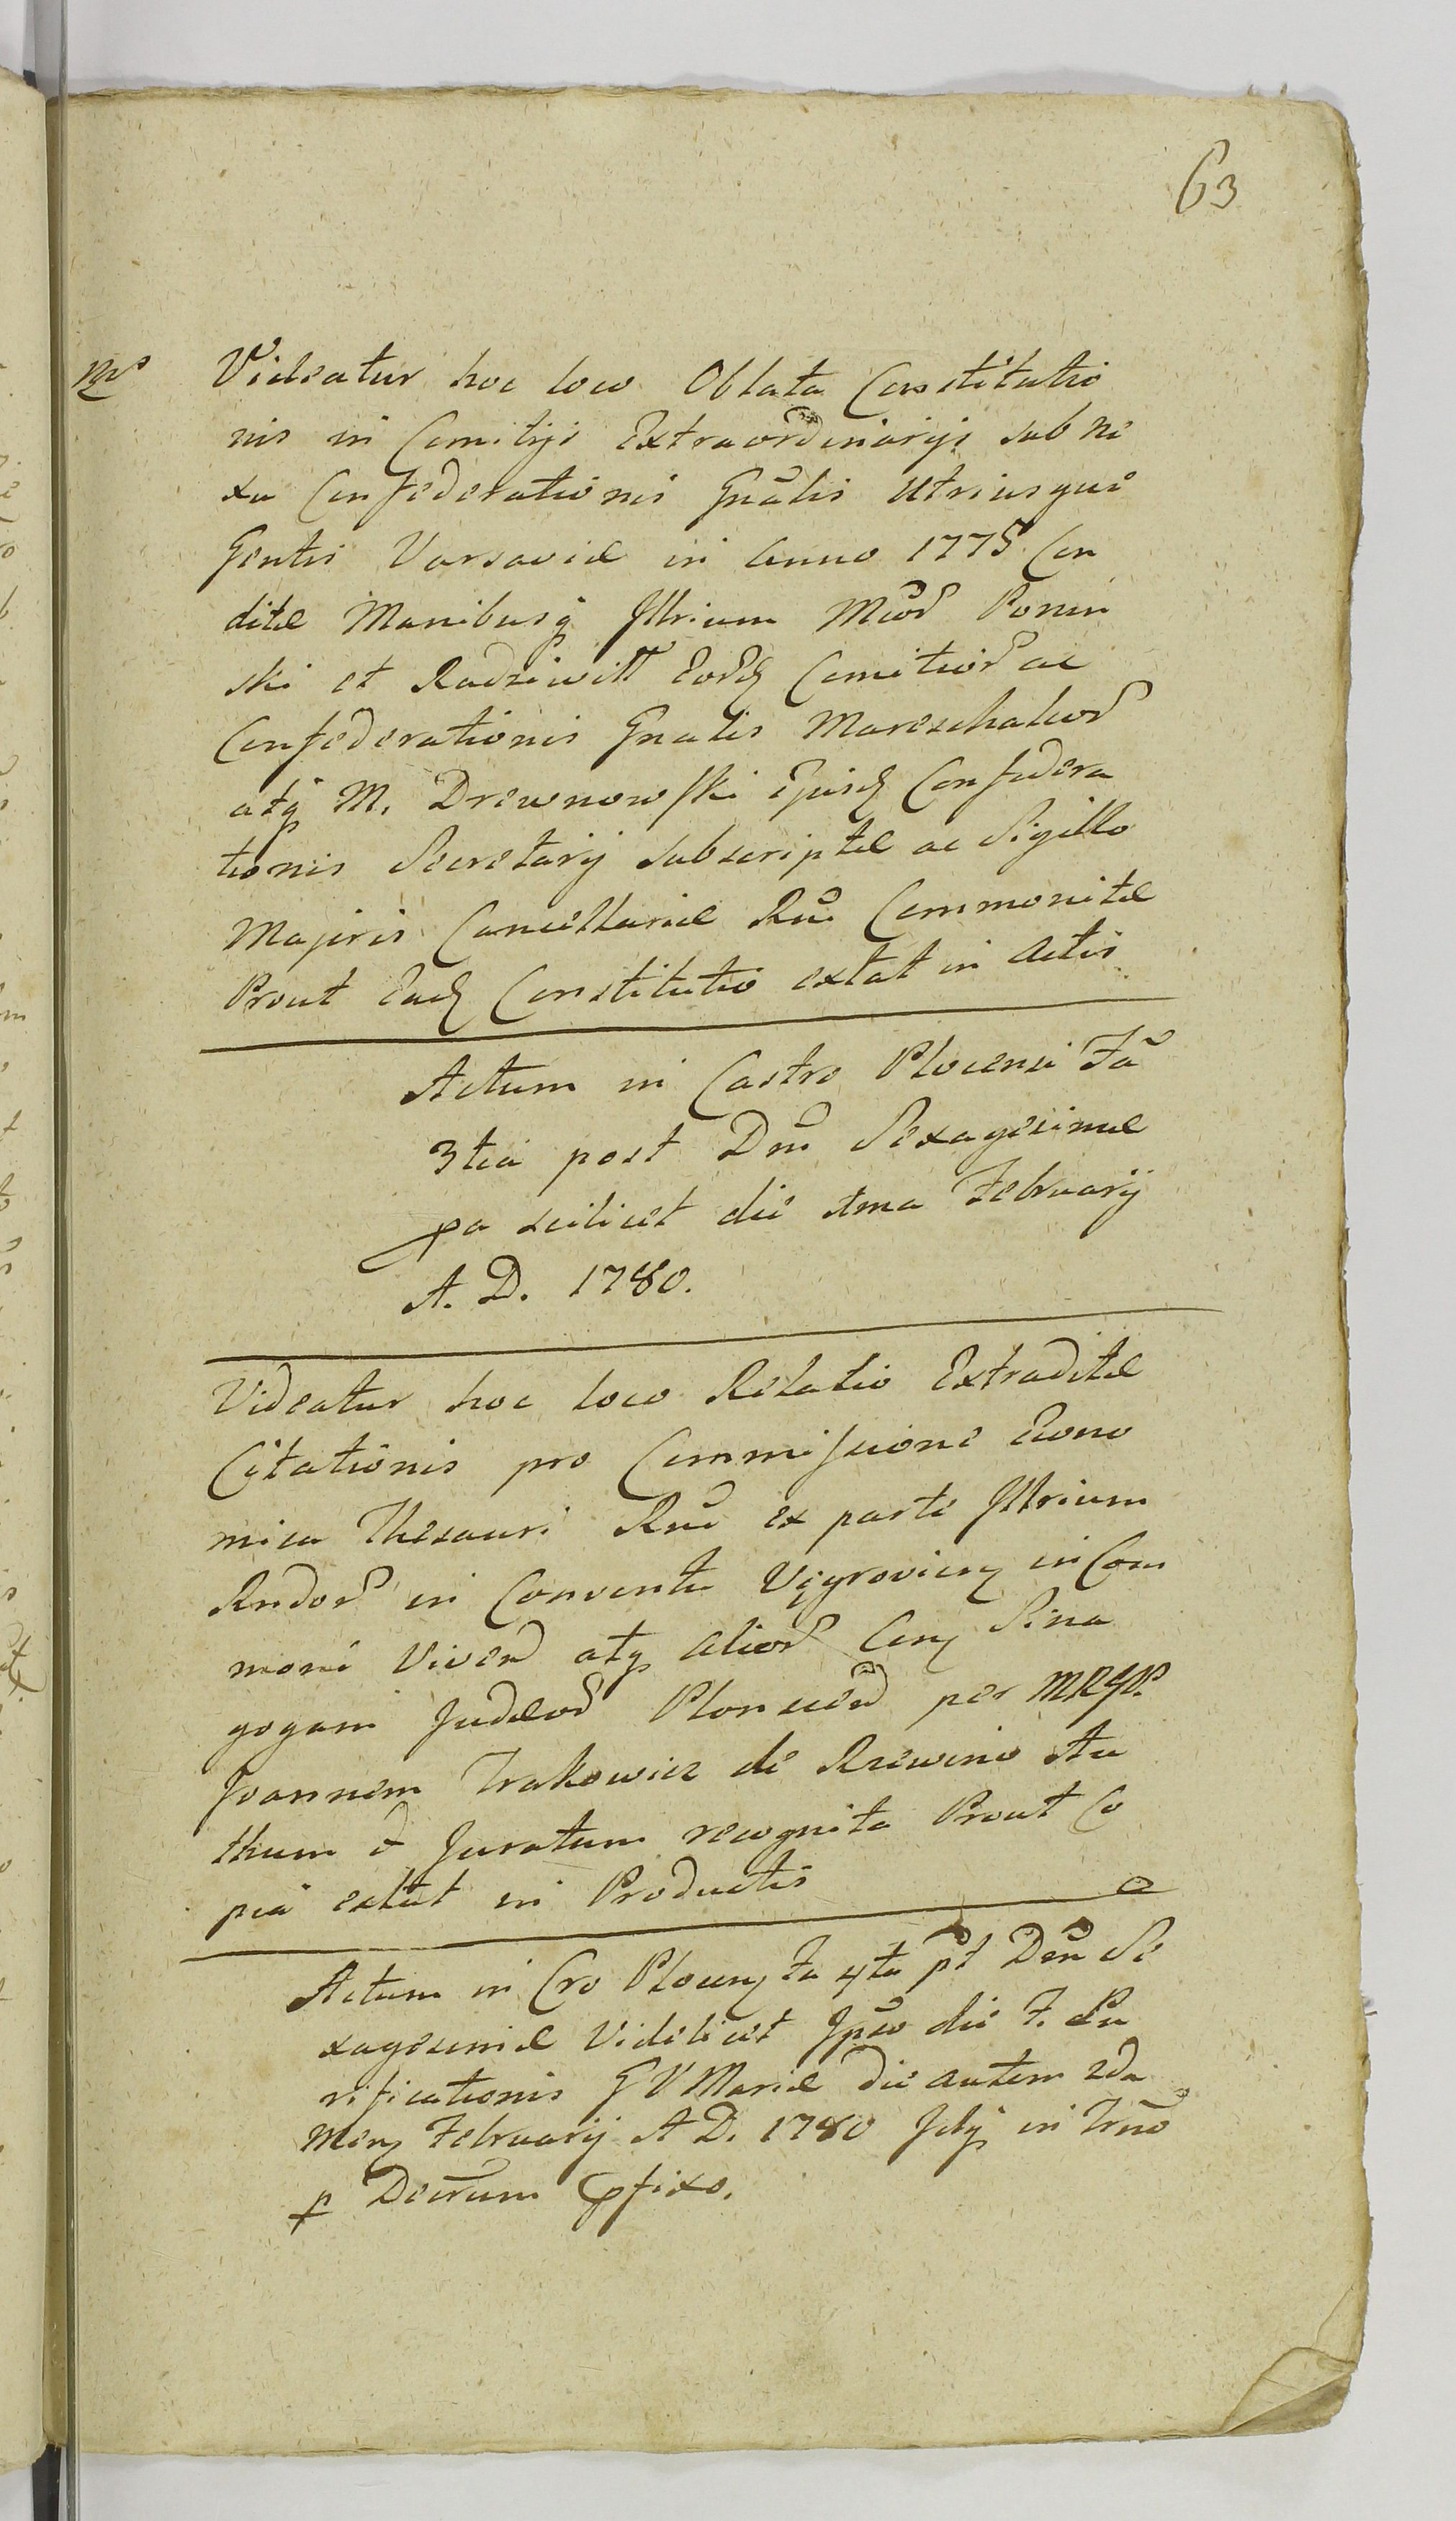 63
Videatur hoc loco Oblata Constitutio
nis in Comitijs Extraordinarijs sub ne
xu Confederationis Gnãlis Utriusque
Gentis Varsaviæ in Anno 1775 Con
ditæ Manibusq Illrium Mcor Ponin
ski et Radziwiłł Eord Comitior ac
Confederationis Gnalis Mareschalcor
atq M. Drewnowski Ejusd Confedera
tionis Secretarij subscriptæ ac Sigillo
Majoris Cancellariæ Rni Communitæ
Prout Ead Constitutio extat in Actis
Actum in Castro Plocensi Fa
3tia post Dnu Sexagesimæ
pa scilicet die 1ma February
A. D. 1780.
Videatur hoc loco Relatio Extraditæ
Citationis pro Commissione Econo
mica Thesauri Rni ex parte Illrium
Rndor in Conventu Vęgrovien in Com
moni Viven atq Alior Con Sina
gogam Judeor Plonscen per MRGP.
Joannem Trakowicz de Rzewino Au
thum & Juratum recognita Prout Co
pia extat in Productis
Actum in Cro Plocen Fa 4ta pt Dnu Se
xagesimæ Videlicet Ipso die F. Pu
rificationis G V Mariæ die autem 2da
Men February A D. 1780 Idq in Trno
p Decrum pfixo.